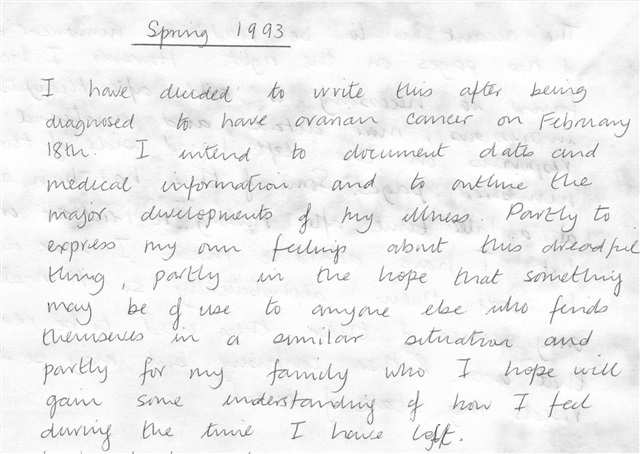 Spring 1993
I have decided to write this after being
diagnosed to have ovarian cancer on February
18th. I intend to document dates and
medical information and to outline the
major developments of my illness. Partly to
express my own feelings about this dreadful
thing, partly in the hope that something
may be of use to anyone else who finds
themselves in a similar situation and
partly for my family who I hope will
gain some understanding of how I feel
during the time I have left.